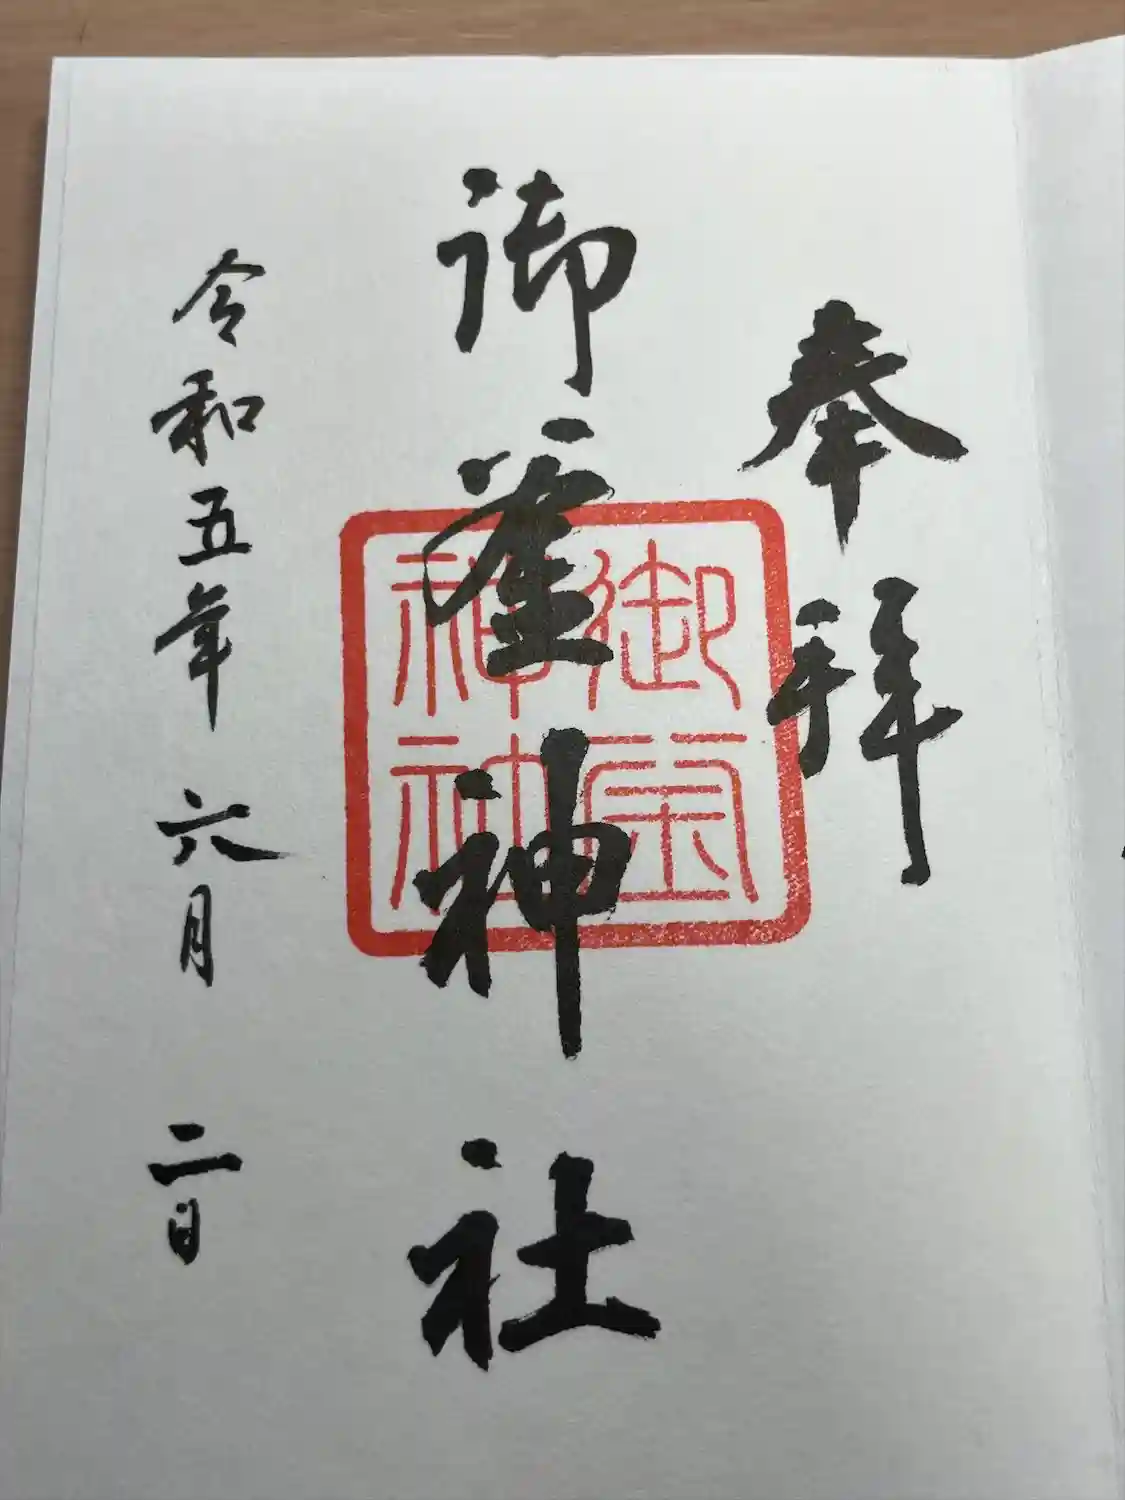 奉拝
御釜神社
御釜神社
令和五年六月二日